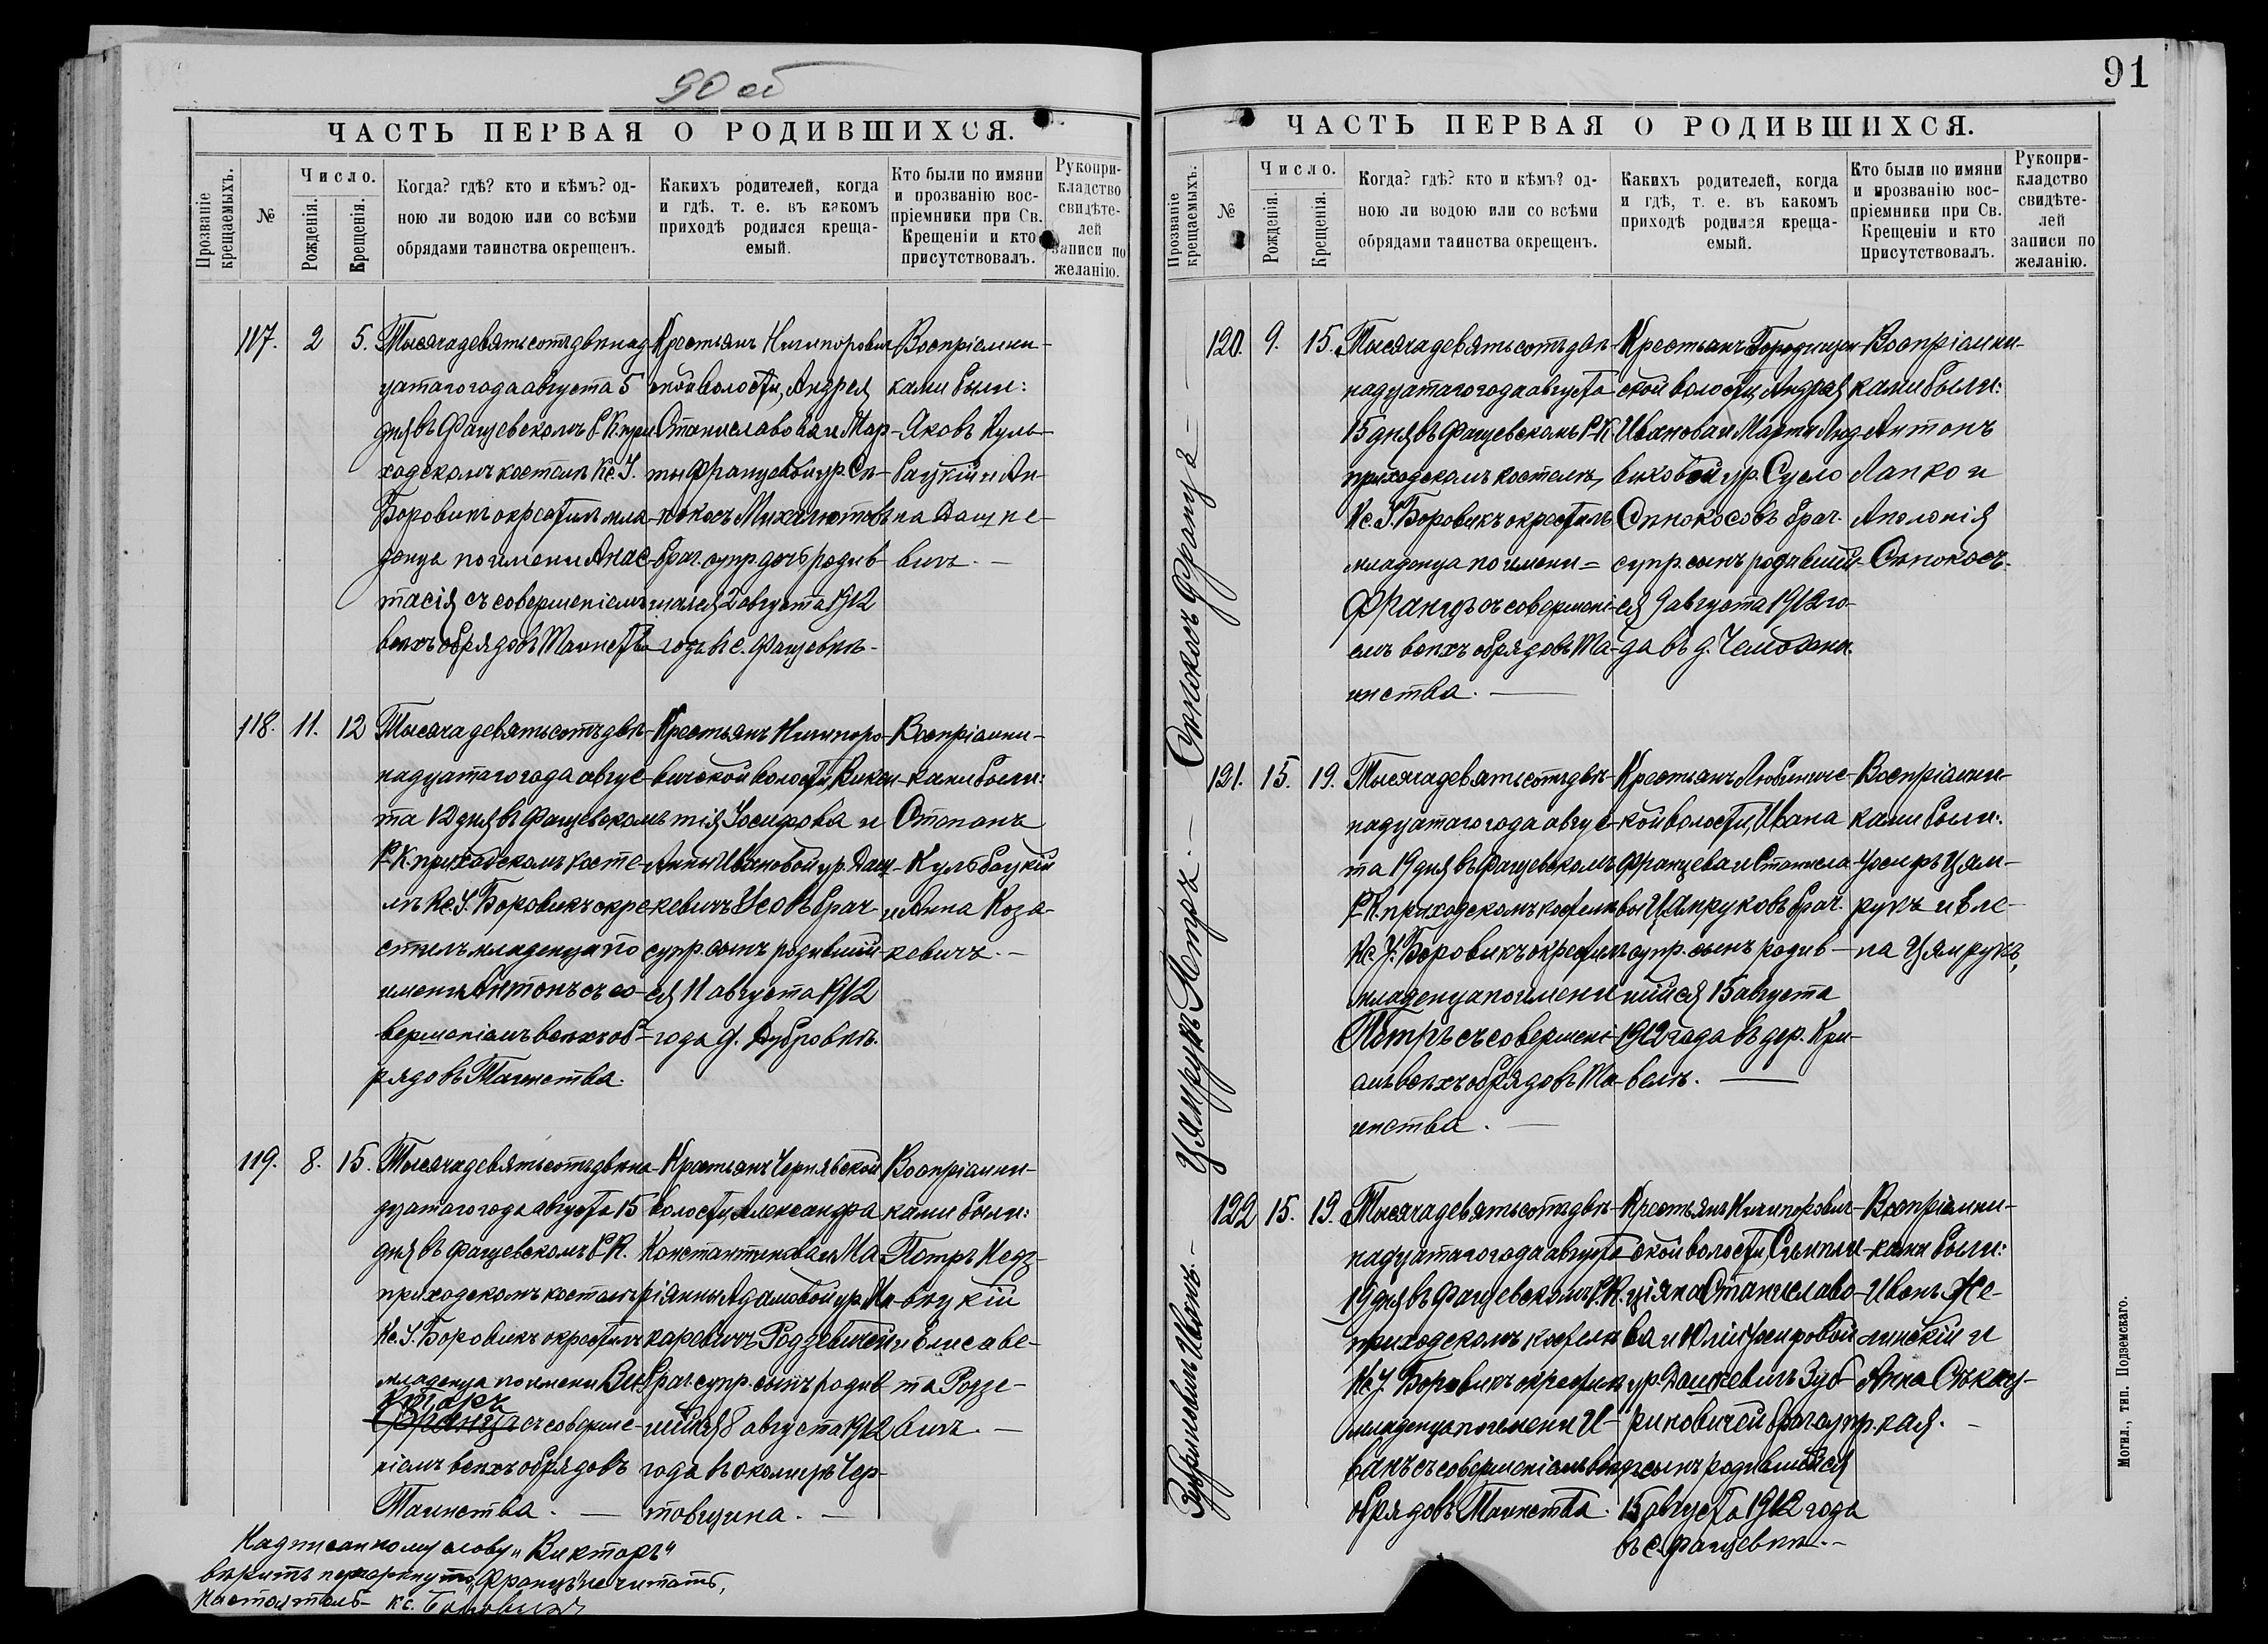 90 об
ЧАСТЬ ПЕРВАЯ О РОДИВШИХСЯ.
Прозваніе крещаемыхъ.
№
Число.
Рожденія.
Крещенія.
Когда? гдѣ? кто и кѣмъ? од-
ною ли водою или со всѣми
обрядами таинства окрещенъ.
Какихъ родителей, когда
и гдѣ. т. е. въ какомъ
приходѣ родился креща-
емый.
Кто были по имяни
и прозванію вос-
пріемники при Св.
Крещеніи и кто
присутствовалъ.
Рукопри-
кладство
свидѣте-
лей
записи по
желанію.
117. 2 5.
Тысяча девятьсотъ двѣнад
цатаго года августа 5
дня въ Фащевскомъ Р. К. при
ходскомъ костелѣ Кс. І.
Боровикъ окрестилъ мла-
денца по имени Анас-
тасія съ совершеніемъ
всѣхъ обрядовъ Таинства
Крестьянъ Ничипорович
ской волости, Андрея
Станиславова и Мар-
ты Францевой ур. Сѣ-
нокосъ Михалютовъ
брач. супр. дочь родив
шаяся 2 августа 1912
года въ с. Фащевкѣ.
Воспріемни-
ками были:
Яковъ Куль-
бацкій и Ан-
на Дашке-
вичъ.
118. 11. 12
Тысяча девятьсотъ двѣ-
надцатаго года авгус-
та 12 дня въ Фащевскомъ
Р. К. приходскомъ косте-
лѣ Кс. І. Боровикъ окре-
стилъ младенца по
имени Антонъ съ со-
вершеніемъ всѣхъ об-
рядовъ Таинства.
Крестьянъ Ничипоро-
вичской волости, Викен-
тія Іосифова и
Анны Ивановой ур. Даш-
кевичъ Исовъ брач.
супр. сынъ родивший-
ся 11 августа 1912
года д. Дубровкѣ.
Воспріемни-
ками были:
Степанъ
Кульбацкій
и Анна Коза-
кевичъ.
119. 8. 15.
Тысяча девятьсотъ двѣна-
дцатаго года августа 15
дня въ Фащевскомъ Р. К.
приходскомъ костелѣ
Кс. І. Боровикъ окрестилъ
младенца по имени Ви
кторъ
Францъ съ соверше-
ніемъ всѣхъ обрядовъ
Таинства.
Крестьянъ Чернявской
волости, Александра
Константинова и Ма
ріянны Адамовой ур. Ма
каревичъ Родзевичей
брач. супр. сынъ родив
шійся 8 августа 1912
года въ околицѣ Чер-
товщина.
Воспріемни-
ками были:
Петръ Недз-
вѣцкій
и Елисаве-
та Родзе-
вичъ.
Надписанному слову „Викторъ"
вѣрить перечеркнуто „Францъ" не читать,
Настоятель кс. Боровикъ
91
ЧАСТЬ ПЕРВАЯ О РОДИВШИХСЯ.
Прозваніе крещаемыхъ.
№
Число.
Рожденія.
Крещенія.
Когда? гдѣ? кто и кѣмъ? од-
ною ли водою или со всѣми
обрядами таинства окрещенъ.
Какихъ родителей, когда
и гдѣ, т. е. въ какомъ
приходѣ родился креща-
емый.
Кто были по имяни
и прозванію вос-
пріемники при Св.
Крещеніи и кто
присутствовалъ.
Рукопри-
кладство
свидѣте-
лей
записи по
желанію.
Сѣнокосъ Францъ
120. 9. 15.
Тысяча девятьсотъ двѣ-
надцатаго года августа
15 дня въ Фащевскомъ Р-К
приходскомъ костелѣ,
Кс. І. Боровикъ окрестилъ
младенца по имени =
Францъ съ совершені-
емъ всѣхъ обрядовъ Та-
инства.
Крестьянъ Городищен-
ской волости, Андрея
Иванова и Марты Люд-
виковой ур. Сусло
Сѣнокосовъ брач.
супр. сынъ родившій-
ся 9 августа 1912 го-
да въ д.
Воспріемни-
ками были:
Антонъ
Лапко и
Аполонія
Сѣнокосъ.
Цямрукъ Петръ
121. 15. 19.
Тысяча девятьсотъ двѣ-
надцатаго года авгус-
та 19 дня въ Фащевскомъ
Р. К. приходскомъ костелѣ
Кс. І. Боровикъ окрестилъ
младенца по имени
Петръ съ совершені-
емъ всѣхъ обрядовъ Та-
инства.
Крестьянъ Любиничс-
кой волости, Ивана
Францева и Станисла-
вы Цямруковъ брач.
супр. сынъ родив-
шійся 15 августа
1912 года въ дер. Кри-
велѣ.
Воспріемни-
ками были:
Іосифъ Цям-
рукъ и Еле-
на Цямрукъ,
Зубриновичъ Иванъ.
122 15. 19.
Тысяча девятьсотъ двѣ-
надцатаго года августа
19 дня въ Фащевскомъ Р. К.
приходскомъ костелѣ
Кс. І. Боровикъ окрестилъ
младенца по имени И-
ванъ съ совершеніемъ всѣхъ
обрядовъ Таинства.
Крестьянъ Ничипорович-
ской волости,
Станиславо-
ва и Юліи Іосифовой
ур. Дашкевичъ Зуб-
риновичей брач. супр.
сынъ родившійся
15 августа 1912 года
въ с. Фащевкѣ.
Воспріемни-
ками были:
Иванъ Же-
линскій и
Анна
кая.
Могил., тип. Подземскаго.